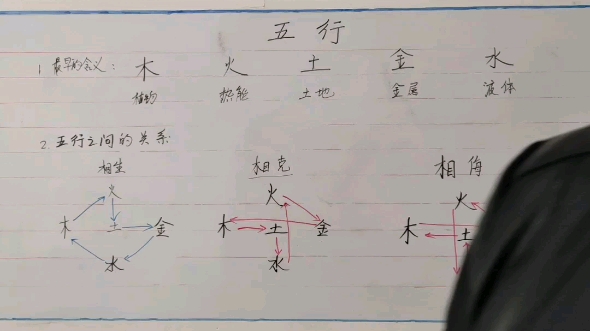 五行
1. 最早的含义: 木 火 土 金 水
植物 热能 土地 金属 液体
2. 五行之间的关系
相生 相克 相侮
火 火 火
木 土 金 木 土 金 木 土
水 水